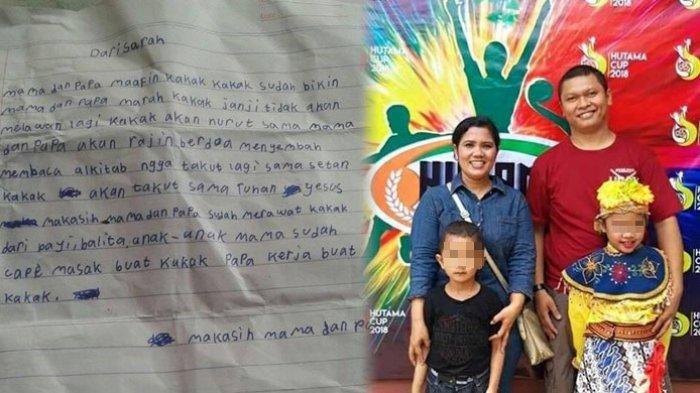 Dari Sarah
mama dan papa maafin kakak kakak sudah bikin
mama dan papa marah kakak janji tidak akan
melawan lagi kakak akan nurut sama mama
dan papa akan rajin berdoa menyembah
membaca alkitab ngga takut lagi sama setan
kakak akan takut sama Tuhan yesus
makasih mama dan papa sudah merawat kakak
dari bayi, balita, anak-anak mama sudah
cape masak buat kakak papa kerja buat
kakak.
makasih mama dan p
HUTAMA
CUP
2018
HUTAMA
CUP 2018
HUTAMA
CUP 2018
HUTAMA
CUP 2018